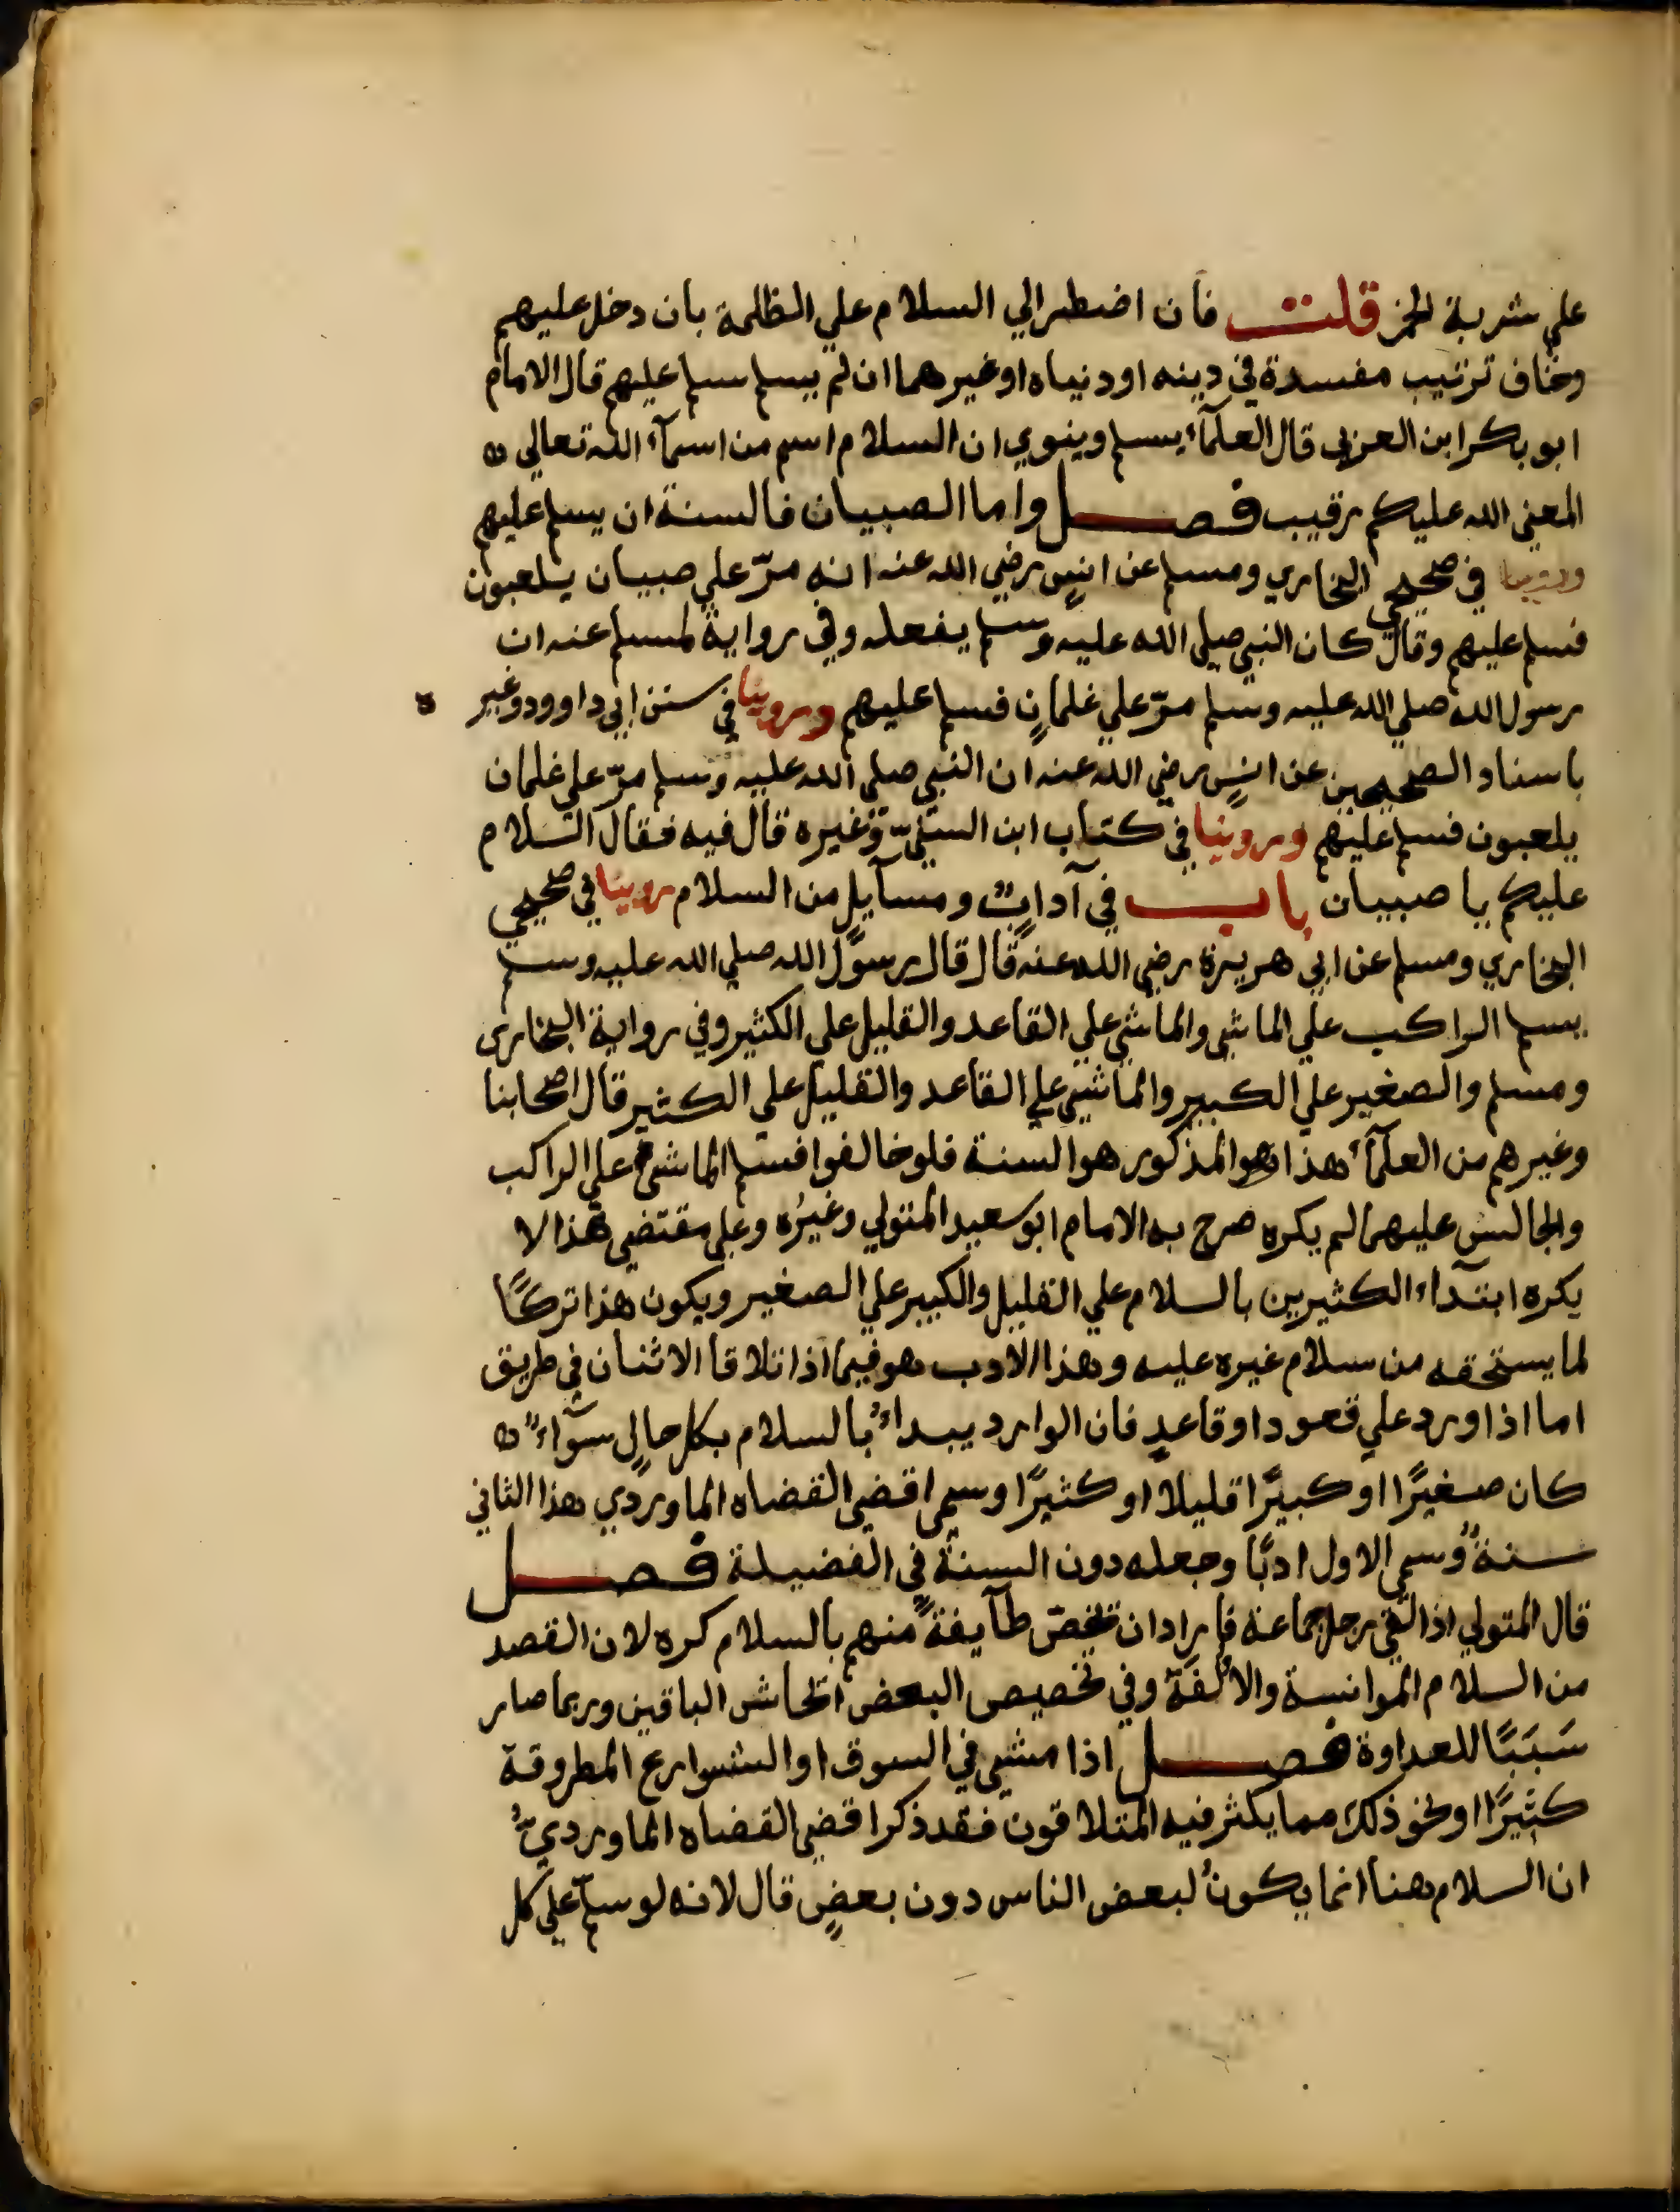 علي شربة الخمر قلت فان اضطر الي السلام علي الظلمة بان دخل عليهم
وخاف ترتيب مفسدة في دينه او دنياه او غيرهما ان لم يسلم سلم عليهم قال الامام
ابو بكر ابن العربي قال العلمآء يسلم وينوي ان السلام اسم من اسمآء الله تعالي
المعني الله عليكم رقيب فصل واما الصبيان فالسنة ان يسلم عليهم
وروينا في صحيحي البخاري ومسلم عن انسٍ رضي الله عنه انه مرّ علي صبيان يلعبون
فسلم عليهم وقال كان النبي صلي الله عليه وسلم يفعله وفي رواية لمسلم عنه ان
رسول الله صلي الله عليه وسلم مرّ علي غلمانٍ فسلم عليهم وروينا في سنن ابي داوود وغيره
باسناد الصحيحين عن انسٍ رضي الله عنه ان النبي صلي الله عليه وسلم مرّ علي غلمان
يلعبون فسلم عليهم وروينا في كتاب ابن السنيّ وغيره قال فيه فقال السلام
عليكم يا صبيان باب في آدابٍ ومسآيل من السلام روينا في صحيحي
البخاري ومسلم عن ابي هريرة رضي الله عنه قال قال رسول الله صلي الله عليه وسلم
يسلم الراكب علي الماشي والماشي علي القاعد والقليل علي الكثير وفي رواية البخارى
ومسلم والصغير علي الكبير والماشي علي القاعد والقليل علي الكثير قال اصحابنا
وغيرهم من العلمآء هذا هو المذكور هو السنة فلو خالفوا فسلم الماشي علي الراكب
والجالس عليهما لم يكره صرح به الامام ابو سعيد المتولي وغيرُه وعلي مقتضي هذا لا
يكره ابتدآء الكثيرين بالسلام علي القليل والكبير علي الصغير ويكون هذا تركًا
لما يستحقه من سلام غيره عليه وهذا الادب هو فيما اذا تلاقا الاثنان في طريق
اما اذا ورد علي قعود او قاعدٍ فان الوارد يبداءُ بالسلام بكل حالٍ سوآءً
كان صغيرًا او كبيرًا قليلا او كثيرًا وسمي اقضي القضاه الماوردي هذا الثاني
سنةً وسمي الاول ادبًا وجعله دون السنة في الفضيلة فصل
قال المتولي اذا لقي رجل جماعة فاراد ان يخصّ طآيفةً منهم بالسلام كره لان القصد
من السلام الموانسة والالفة وفي تخصيص البعض ايحاش الباقين وربما صار
سَبَبًا للعداوة فصل اذا مشي في السوق او الشوارع المطروقة
كثيرًا او نحو ذلك مما يكثر فيه المتلاقون فقد ذكر اقضي القضاه الماورديُّ
ان السلام هنا انما يكونُ لبعض الناس دون بعضٍ قال لانه لو سلّم علي كل